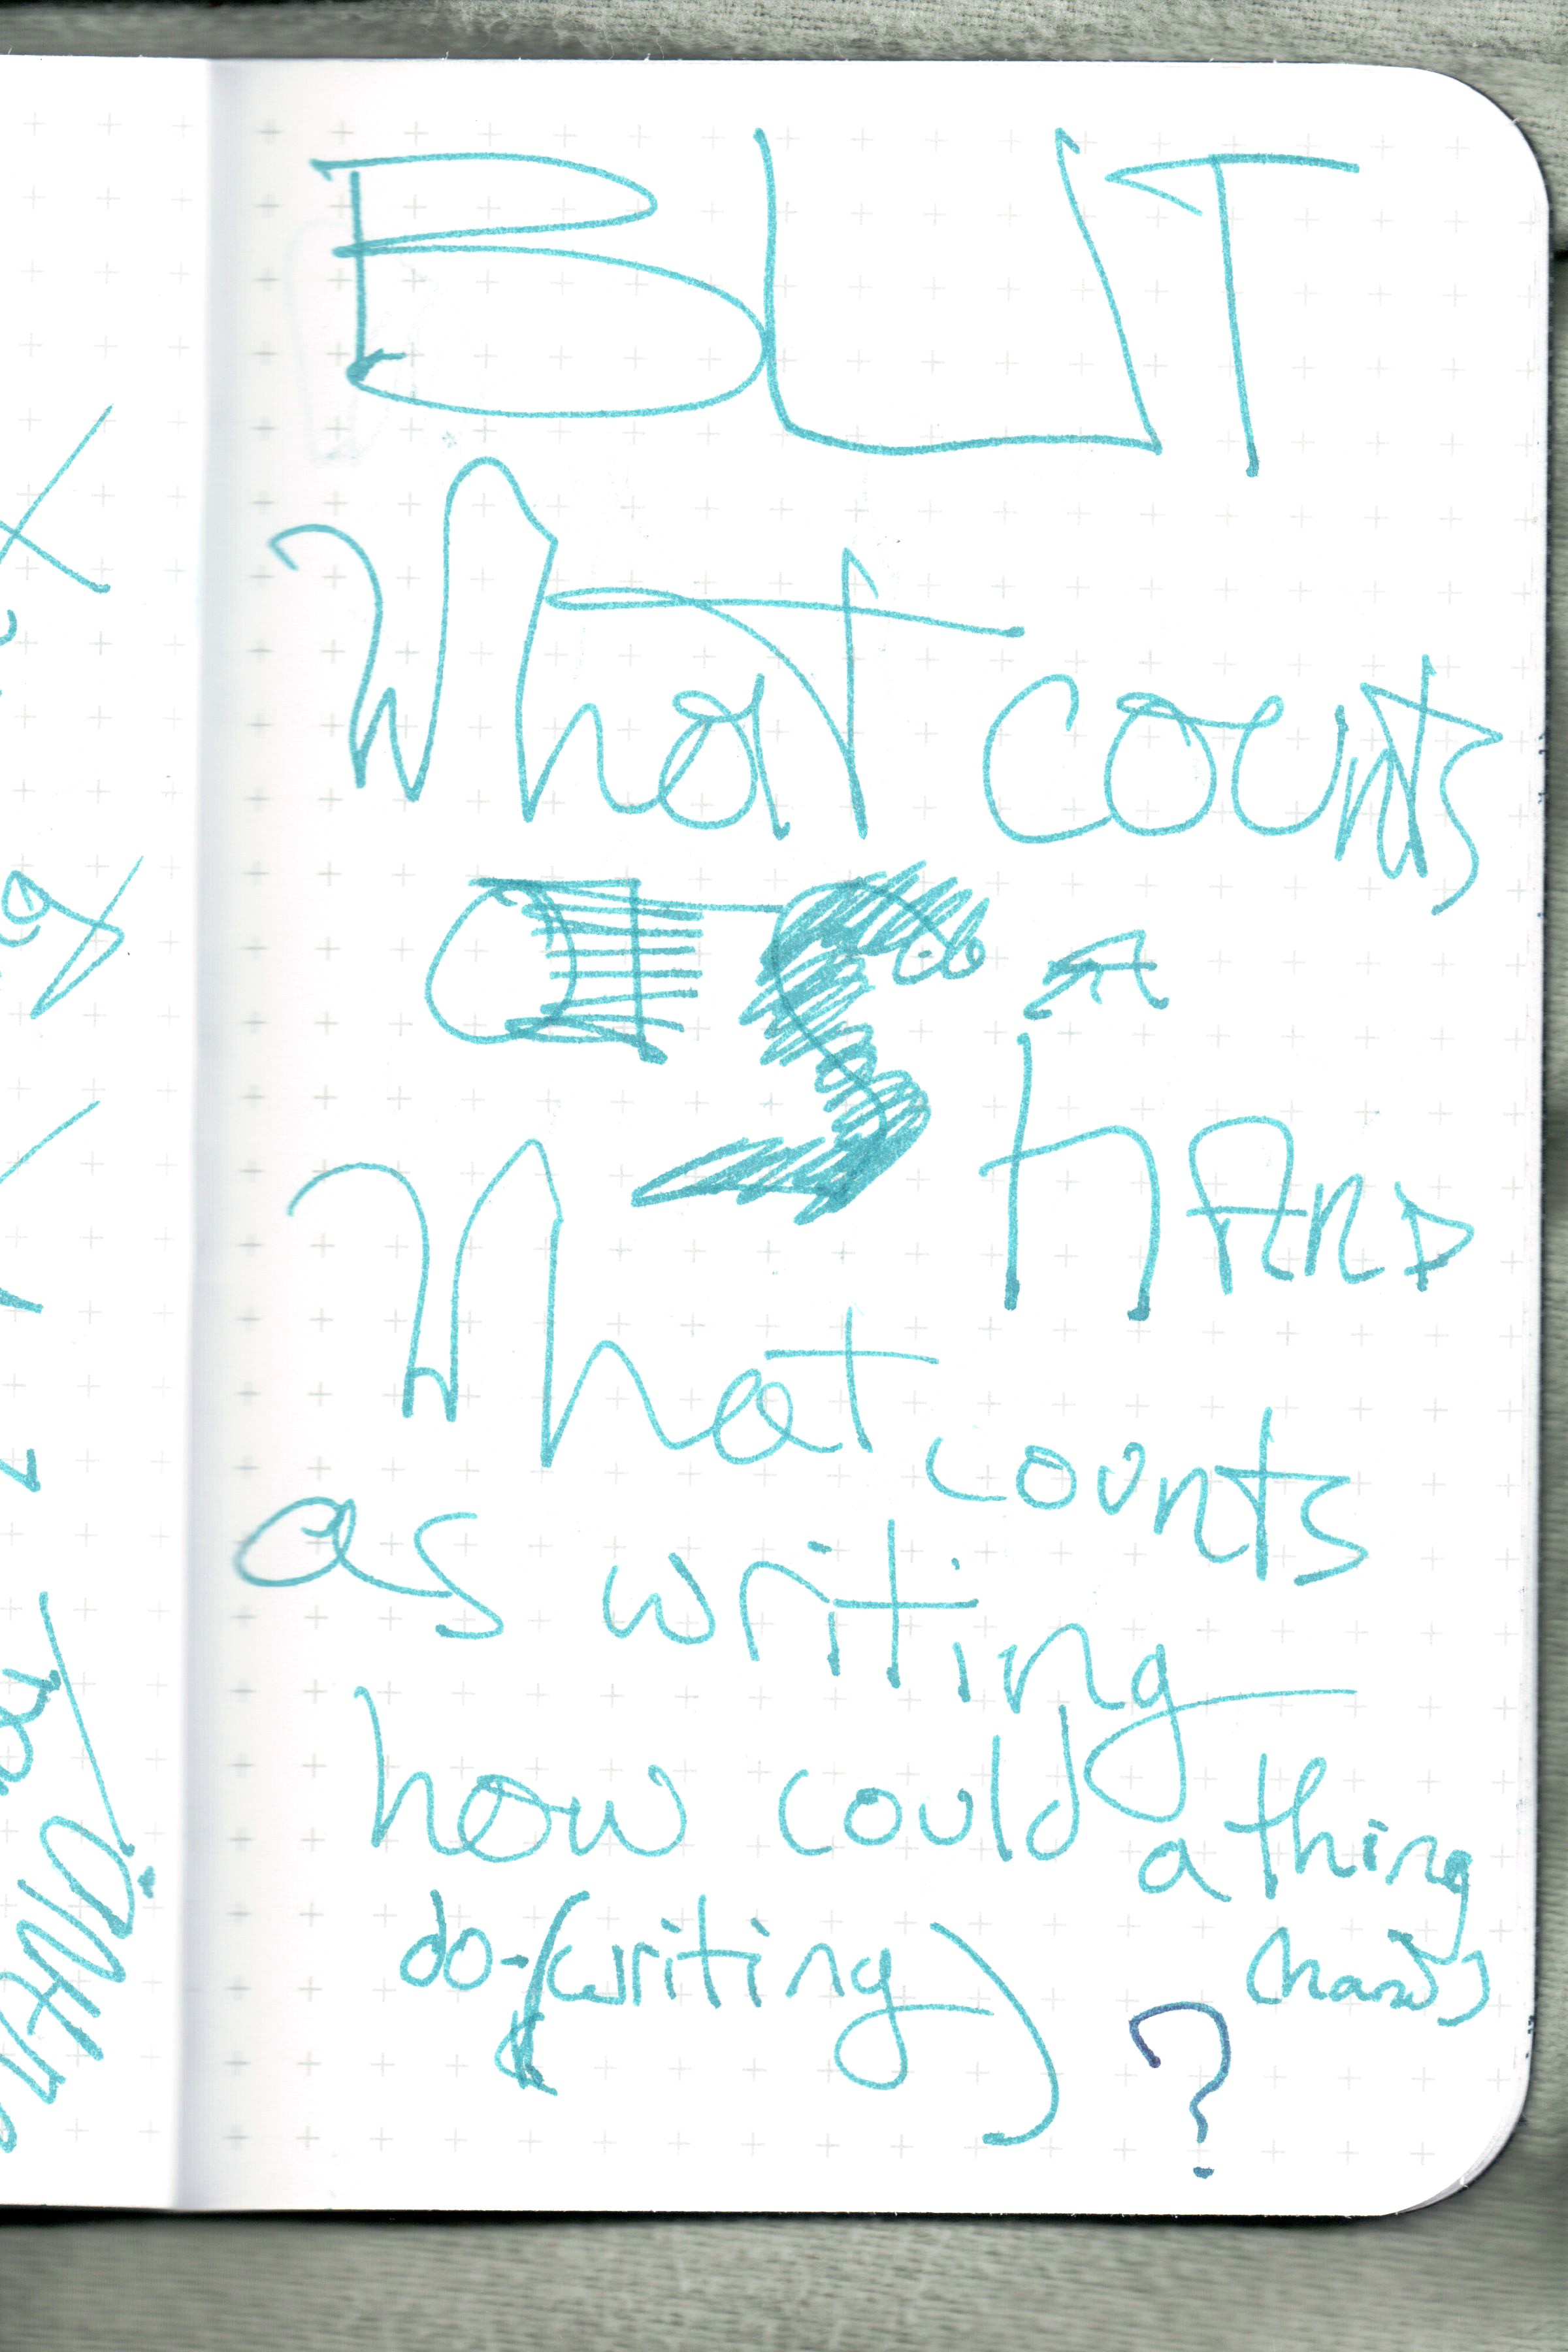 BUT
What counts
as a
hAnD
What counts
as writing
how could a thing
do-(writing) (hand)
?